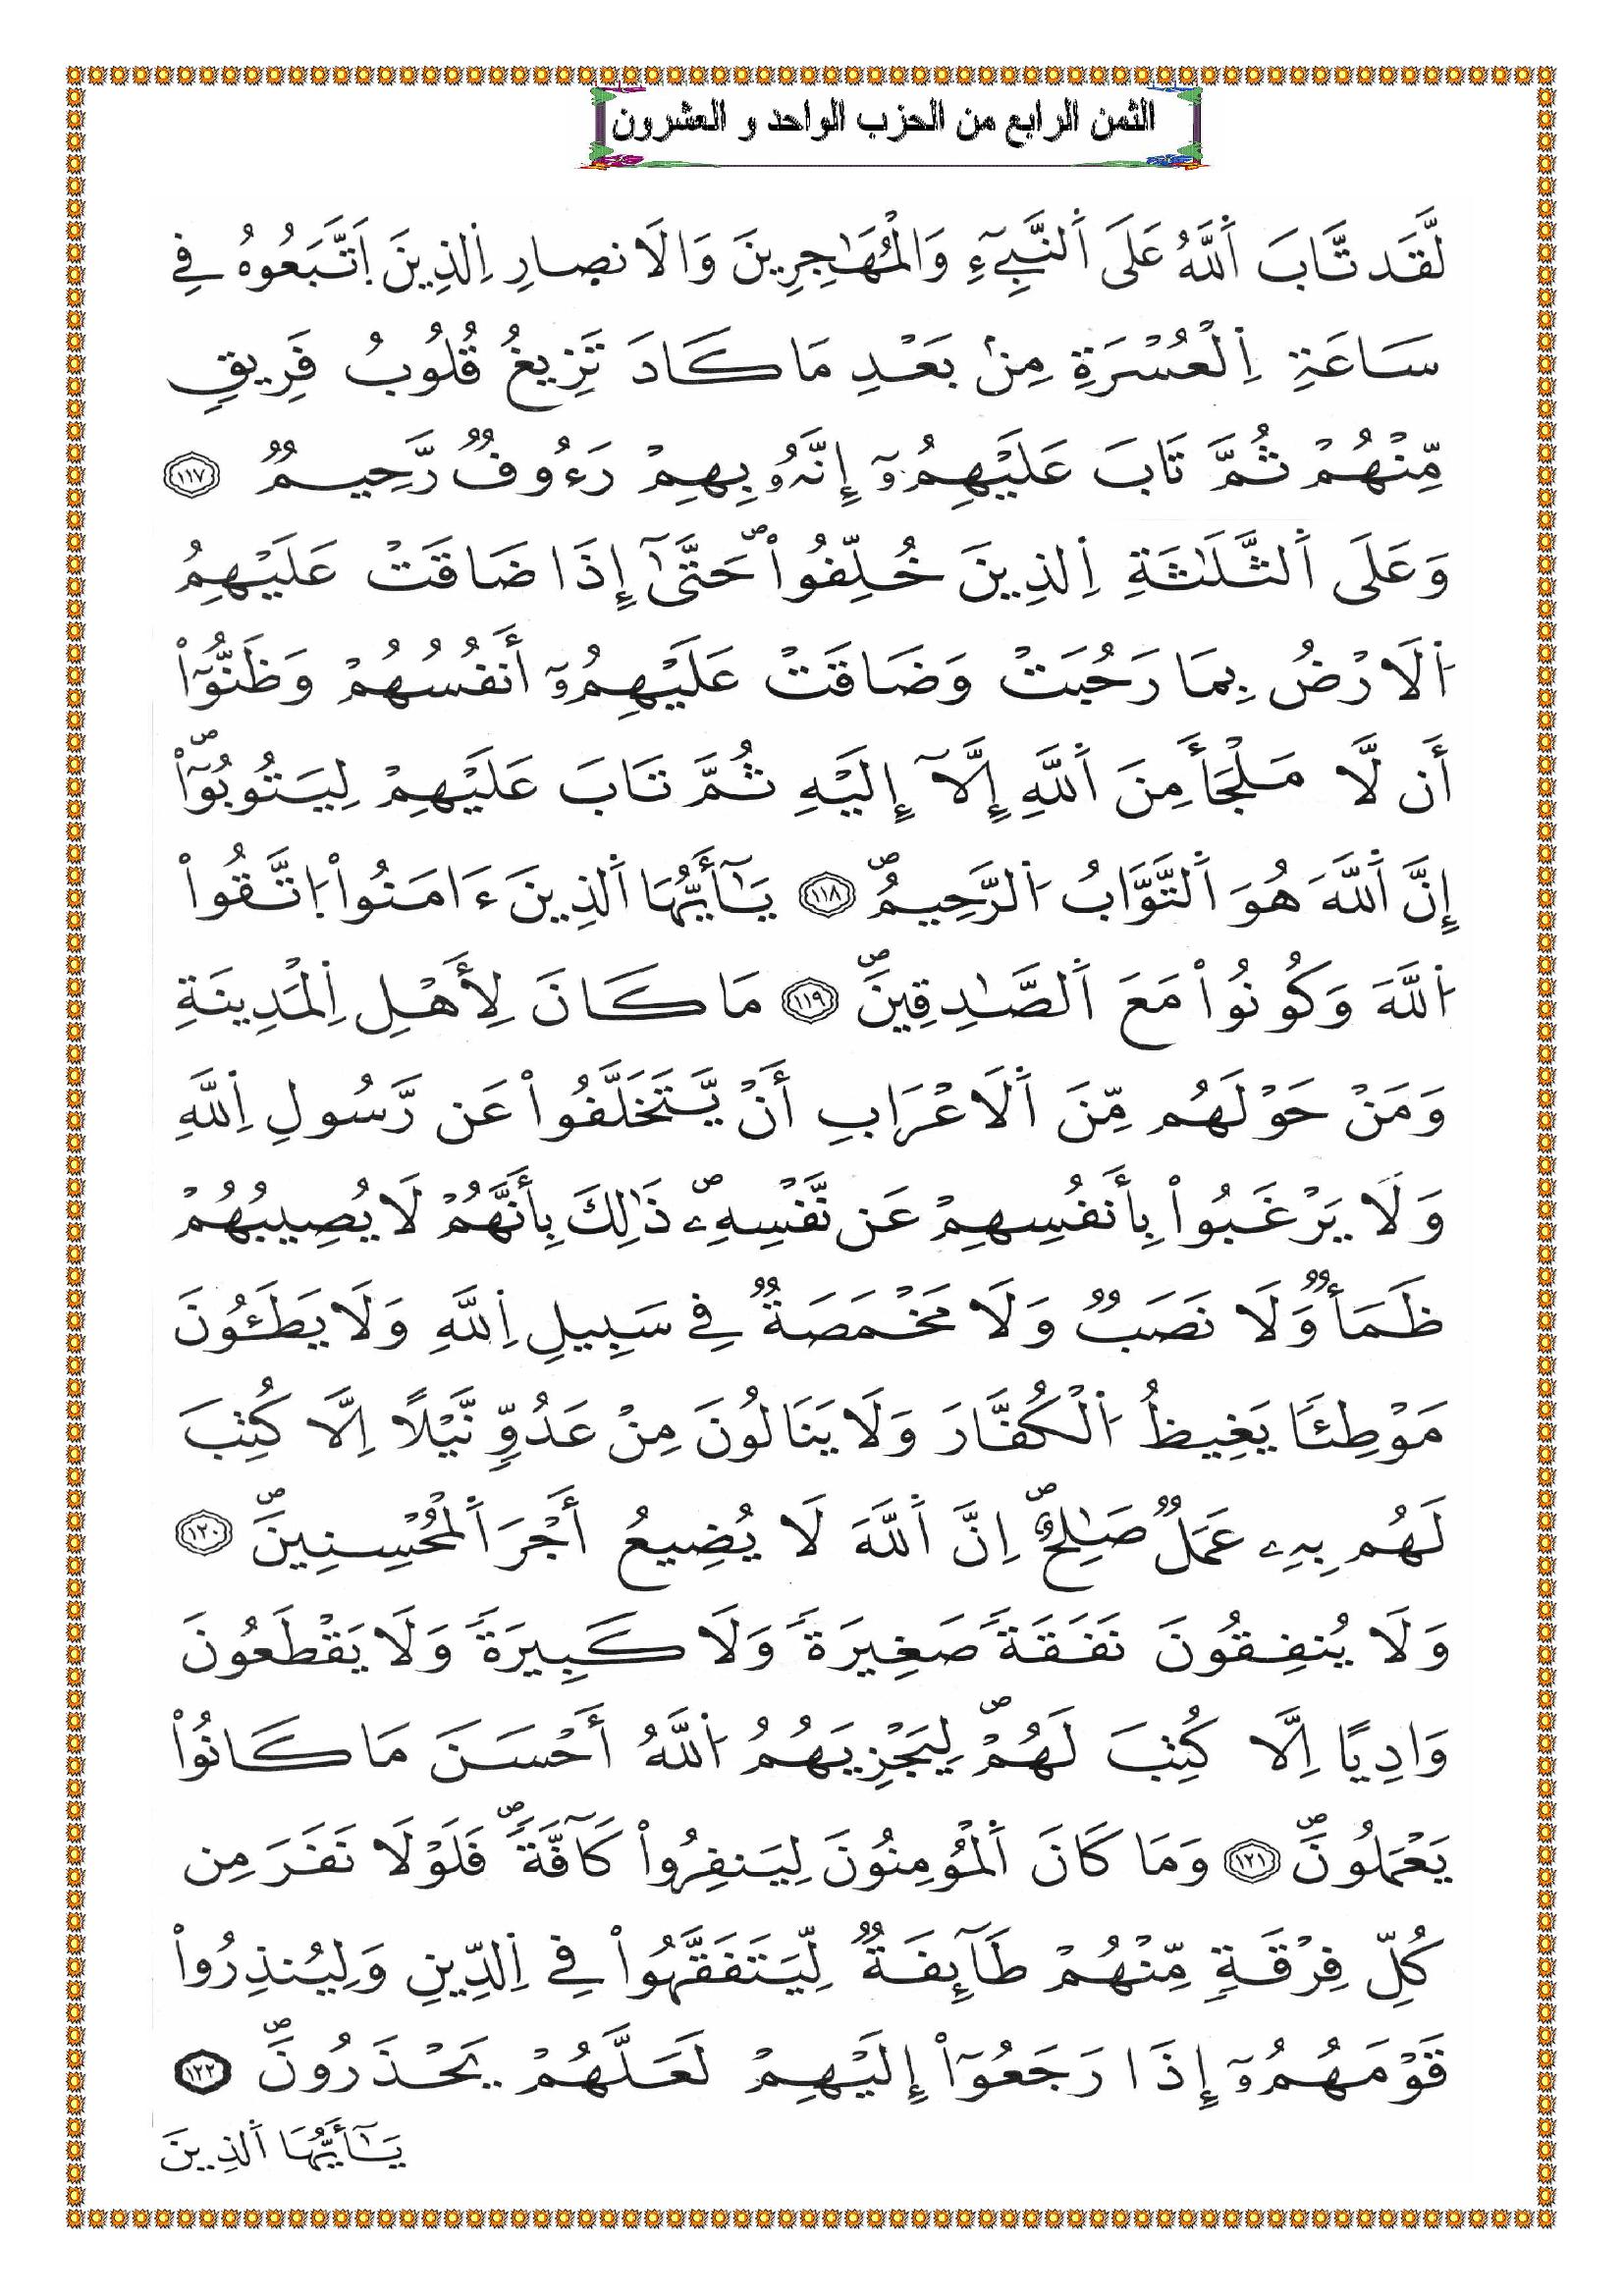 الثمن الرابع من الحزب الواحد و العشرون
لَّقَد تَّابَ اَ۬للَّهُ عَلَى اَ۬لنَّبِيٓءِ وَالْمُهَٰجِرِينَ وَالَانصِارِ اِ۬لذِينَ اَ۪تَّبَعُوهُ فِي
سَاعَةِ اِ۬لْعُسْرَةِ مِنۢ بَعْدِ مَا كَادَ تَزِيغُ قُلُوبُ فَرِيقٖ
مِّنْهُمْ ثُمَّ تَابَ عَلَيْهِمُۥٓ إِنَّهُۥ بِهِمْ رَءُوفٞ رَّحِيمٞ ١١٧
وَعَلَى اَ۬لثَّلَٰثَةِ اِ۬لذِينَ خُلِّفُواْ حَتَّىٰٓ إِذَا ضَاقَتْ عَلَيْهِمُ
اُ۬لَارْضُ بِمَا رَحُبَتْ وَضَاقَتْ عَلَيْهِمُۥٓ أَنفُسُهُمْ وَظَنُّوٓاْ
أَن لَّا مَلْجَأَ مِنَ اَ۬للَّهِ إِلَّآ إِلَيْهِ ثُمَّ تَابَ عَلَيْهِمْ لِيَتُوبُوٓاْ
إِنَّ اَ۬للَّهَ هُوَ اَ۬لتَّوَّابُ اُ۬لرَّحِيمُ ١١٨ يَٰٓأَيُّهَا اَ۬لذِينَ ءَامَنُواْ اُ۪تَّقُواْ
اُ۬للَّهَ وَكُونُواْ مَعَ اَ۬لصَّٰدِقِينَ ١١٩ مَا كَانَ لِأَهْلِ اِ۬لْمَدِينَةِ
وَمَنْ حَوْلَهُم مِّنَ اَ۬لَاعْرَابِ أَنْ يَّتَخَلَّفُواْ عَن رَّسُولِ اِ۬للَّهِ
وَلَا يَرْغَبُواْ بِأَنفُسِهِمْ عَن نَّفْسِهِۦ ذَٰلِكَ بِأَنَّهُمْ لَا يُصِيبُهُمْ
ظَمَأٞ وَلَا نَصَبٞ وَلَا مَخْمَصَةٞ فِي سَبِيلِ اِ۬للَّهِ وَلَا يَطَـُٔونَ
مَوْطِئاٗ يَغِيظُ اُ۬لْكُفَّارَ وَلَا يَنَالُونَ مِنْ عَدُوّٖ نَّيْلاً اِلَّا كُتِبَ
لَهُم بِهِۦ عَمَلٞ صَٰلِحٌ اِنَّ اَ۬للَّهَ لَا يُضِيعُ أَجْرَ اَ۬لْمُحْسِنِينَ ١٢٠
وَلَا يُنفِقُونَ نَفَقَةٗ صَغِيرَةٗ وَلَا كَبِيرَةٗ وَلَا يَقْطَعُونَ
وَادِياً اِلَّا كُتِبَ لَهُمْ لِيَجْزِيَهُمُ اُ۬للَّهُ أَحْسَنَ مَا كَانُواْ
يَعْمَلُونَ ١٢١ وَمَا كَانَ اَ۬لْمُؤْمِنُونَ لِيَنفِرُواْ كَآفَّةٗ فَلَوْلَا نَفَرَ مِن
كُلِّ فِرْقَةٖ مِّنْهُمْ طَآئِفَةٞ لِّيَتَفَقَّهُواْ فِي اِ۬لدِّينِ وَلِيُنذِرُواْ
قَوْمَهُمُۥٓ إِذَا رَجَعُوٓاْ إِلَيْهِمْ لَعَلَّهُمْ يَحْذَرُونَ ١٢٢
يَٰٓأَيُّهَا اَ۬لذِينَ